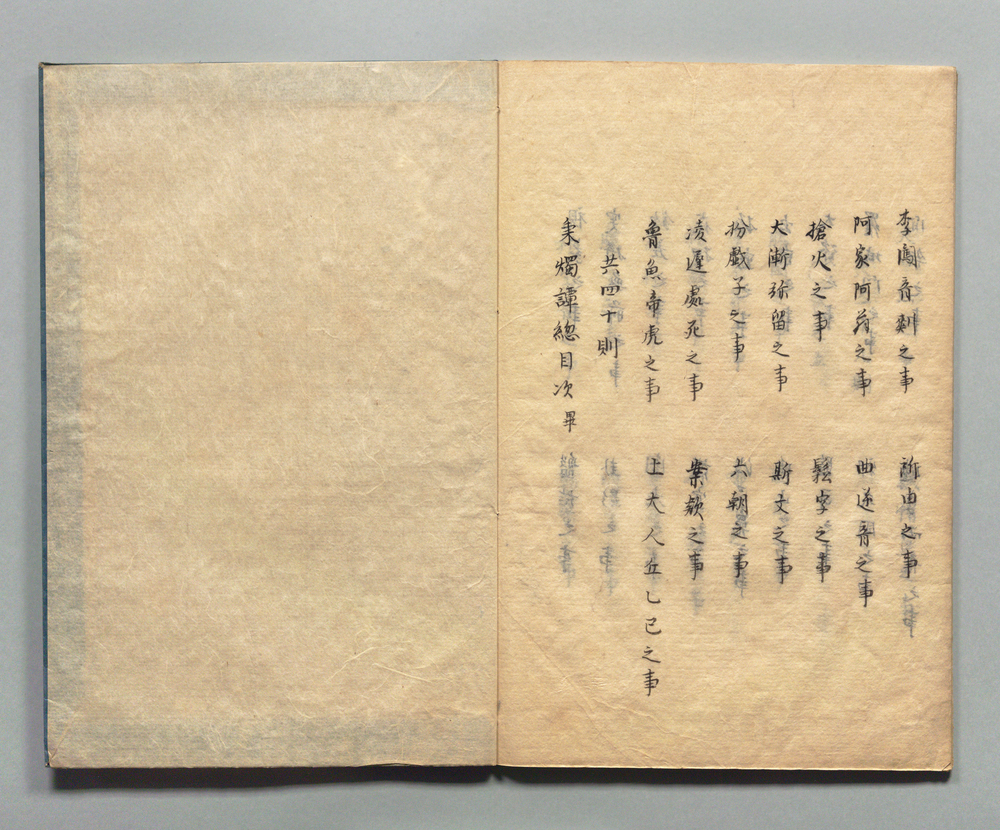 李闖音剡之事
祈由之事
阿家阿翁之事
曲逆音之事
搶火之事
鬆字之事
大漸弥留之事
斯文之事
扮戯子之事
六朝之事
凌遲處死之事
案款之事
魯魚帝虎之事
上大人丘乙已之事
共四十則
秉燭譚總目次畢